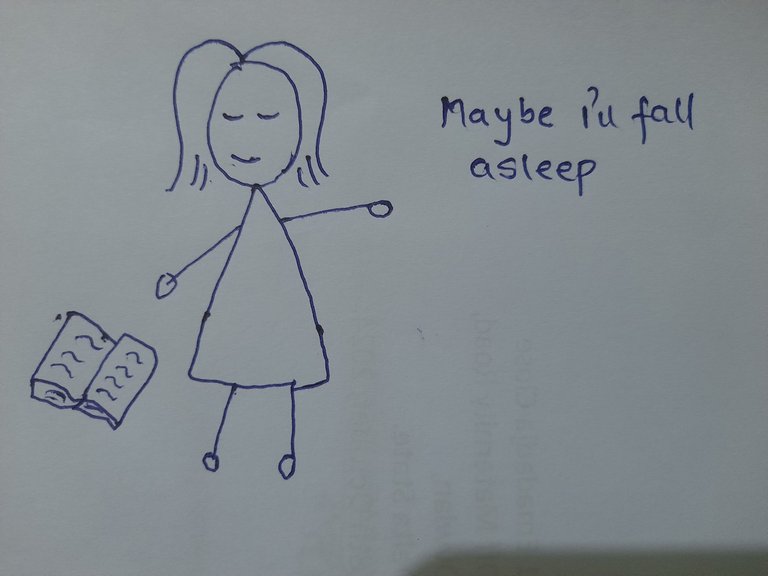 Maybe i'll fall
asleep